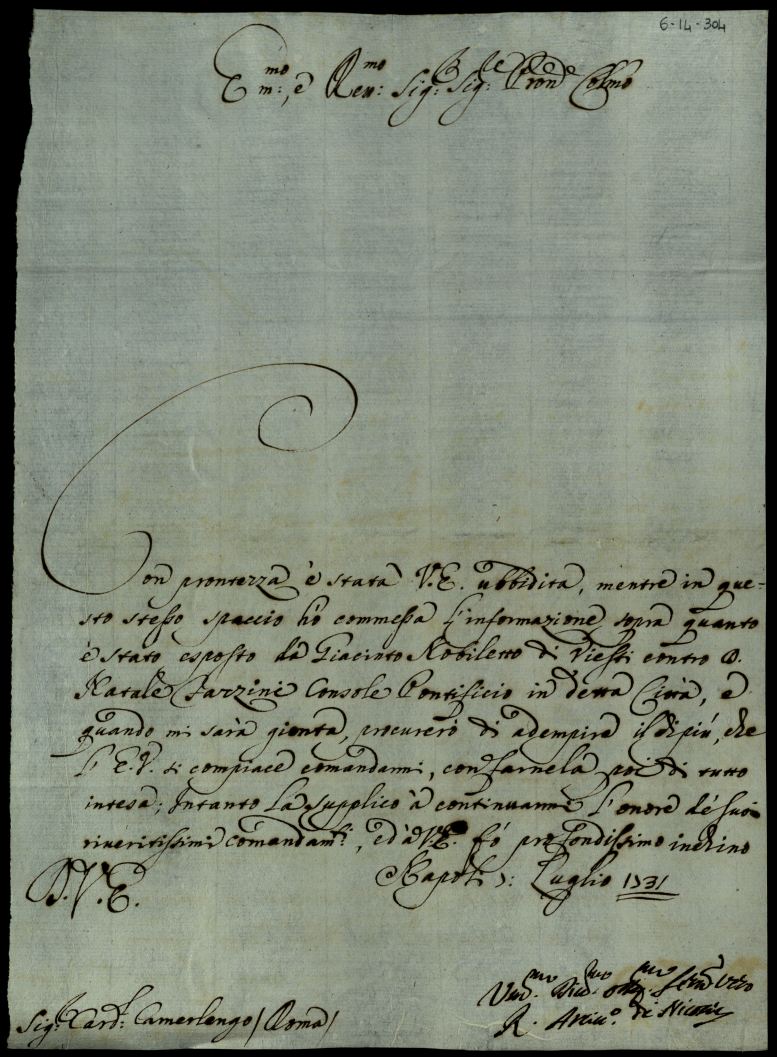 6-14-304
Em:mo, e Reu:mo Sig:r Sig:r Pron:e Colmo
Con prontezza è stata V.E. ubbidita, mentre in que-
sto stesso spaccio hò commessa l'informazione sopra quanto
è stato esposto dà Giacinto Nobiletto di Viesti contro D.
Natale Farzini Console Pontificio in detta Città, e
quando mi sarà gionta, procurerò di adempire il di più, che
l'E.V. si compiace comandarmi, con farnela poi di tutto
intesa; Intanto la supplico à continuarmi l'onore dé suoi
riveritissimi comandam:ti, ed à V.E. fò profondissimo inchino
Napoli 3: Luglio 1731
D.V.E.
Sig:r Card:l Camerlengo / Roma /
Um:mo Diu:mo obl:mo Ser:re vero
R. Arciu:o di